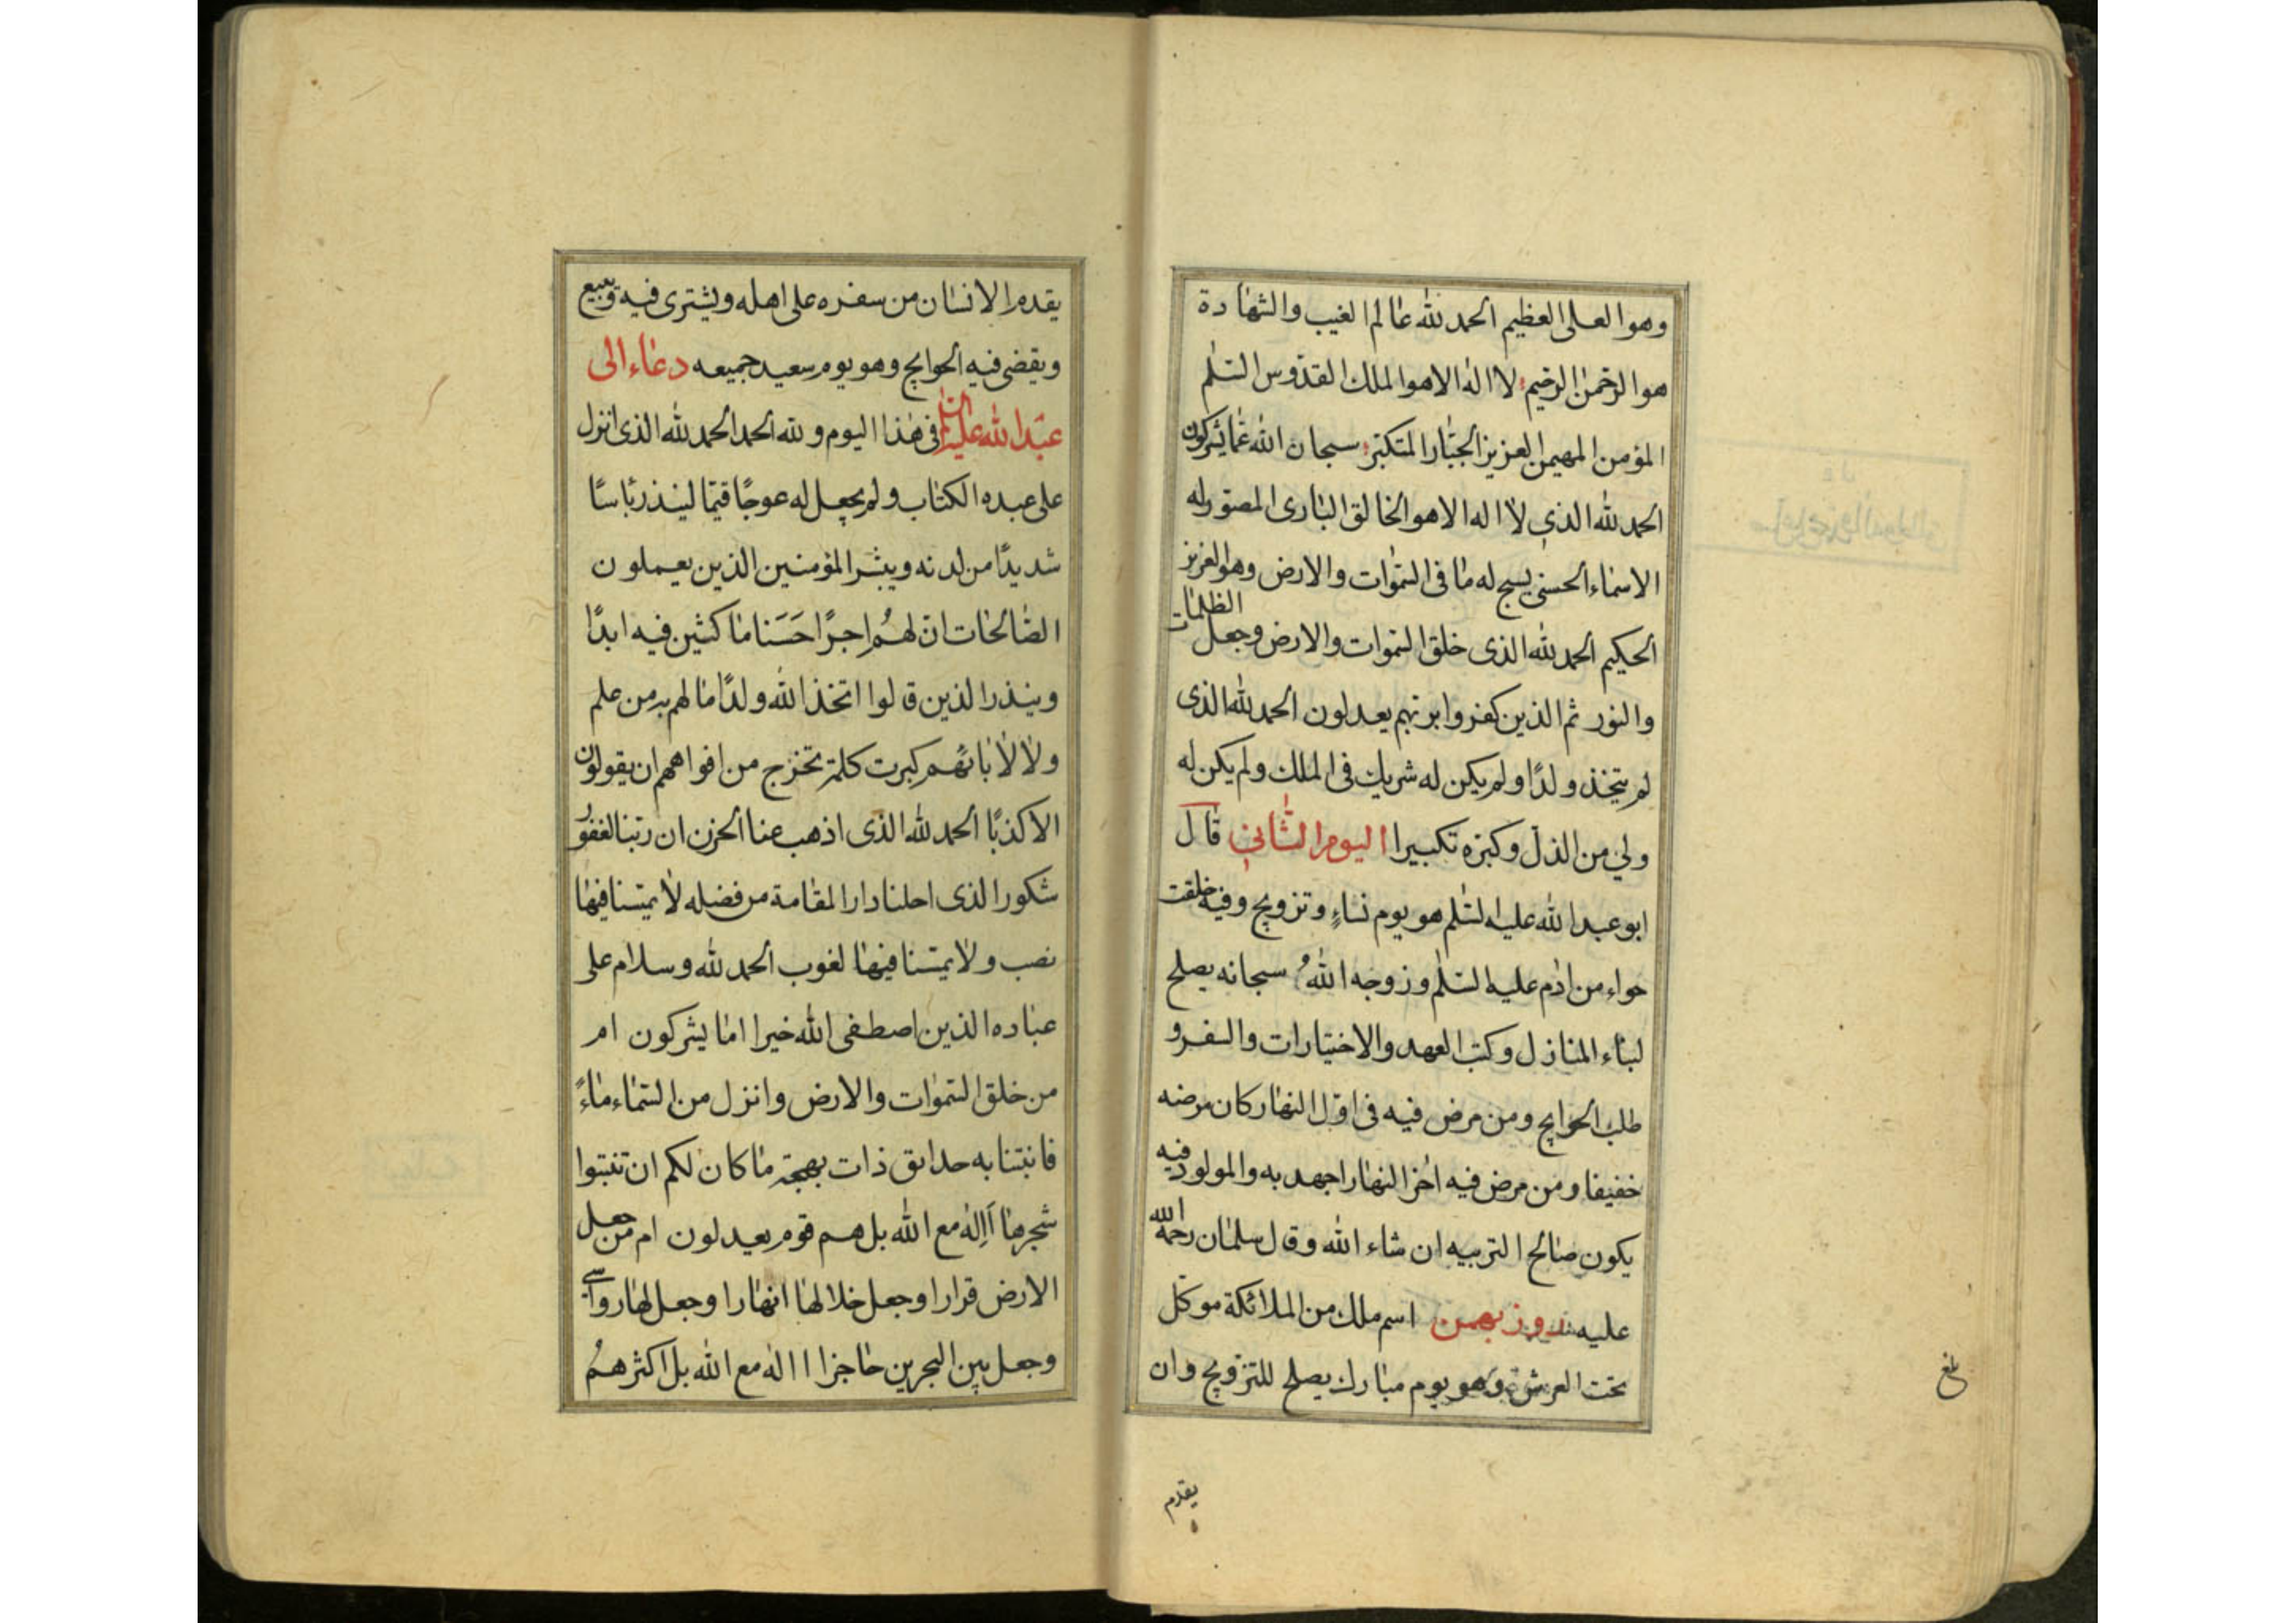 وهو العلى العظيم الحمد لله عالم الغيب والشهادة
هو الرحمن الرحيم لا اله الا هو الملك القدوس السلم
المؤمن المهيمن العزيز الجبار المتكبر سبحان الله عما يشركون
الحمد لله الذى لا اله الا هو الخالق البارى المصور له
الاسماء الحسنى يسبح له ما فى السموات والارض وهو العزيز
الحكيم الحمد لله الذى خلق السموات والارض وجعل الظلمات
والنور ثم الذين كفروا بربهم يعدلون الحمد لله الذى
لم يتخذ ولدًا ولم يكن له شريك فى الملك ولم يكن له
ولى من الذل وكبره تكبيرا اليوم الثانى قال
ابو عبد الله عليه السلم هو يوم نساءٍ وتزويج وفيه خلقت
حواء من ادم عليه السلم وزوجه الله سبحانه يصلح
لبناء المنازل وكتب العهد والاختيارات والسفر و
طلب الحوايج ومن مرض فيه فى اول النهار كان مرضه
خفيفا ومن مرض فيه اخر النهار اجهد به والمولود فيه
يكون صالح التربيه ان شاء الله وقال سلمان رحمه الله
عليه روز بهمن اسم ملك من الملائكة موكل
تحت العرش وهو يوم مبارك يصلح للتزويج وان
يقدم
بلغ
يقدم الانسان من سفره على اهله ويشترى فيه ويبيع
ويقضى فيه الحوايج وهو يوم سعيد جميعه دعاء ابى
عبد الله عليه السلم فى هذا اليوم ولله الحمد الحمد لله الذى انزل
على عبده الكتاب ولم يجعل له عوجًا قيمًا لينذر باسًا
شديدًا من لدنه ويبشر المؤمنين الذين يعملون
الصالحات ان لهم اجرًا حَسَنا ماكثين فيه ابدًا
وينذر الذين قالوا اتخذ الله ولدًا ما لهم به من علم
ولا لاٰبائهم كبرت كلمة تخرج من افواههم ان يقولون
الا كذبًا الحمد لله الذى اذهب عنا الحزن ان ربنا لغفور
شكور الذى احلنا دار المقامة من فضله لا يمسنا فيها
نصب ولا يمسنا فيها لغوب الحمد لله وسلام على
عباده الذين اصطفى الله خيرا اما يشركون ام
من خلق السموات والارض وانزل من السماء ماءً
فانبتنا به حدايق ذات بهجة ما كان لكم ان تنبتوا
شجرها أاله مع الله بل هم قوم يعدلون ام من جعل
الارض قرارا وجعل خلالها انهارا وجعل لها رواسى
وجعل بين البحرين حاجزا االه مع الله بل اكثرهم